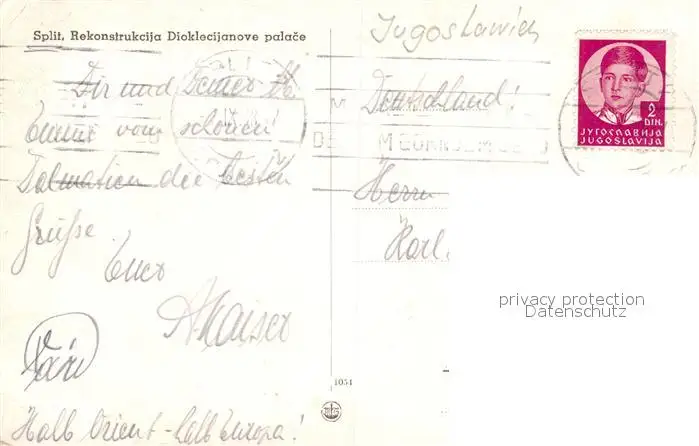 Split. Rekonstrukcija Dioklecijanove palače
Dir und Deiner
vom schönen
Dalmatien die besten
Grüße
Euer
A. Kaiser
Halb Orient - halb Europa!
Jugoslawien
Deutschland!
Herrn
Karl
2
DIN.
ЈУГОСЛАВИЈА
JUGOSLAVIJA
privacy protection
Datenschutz
1054